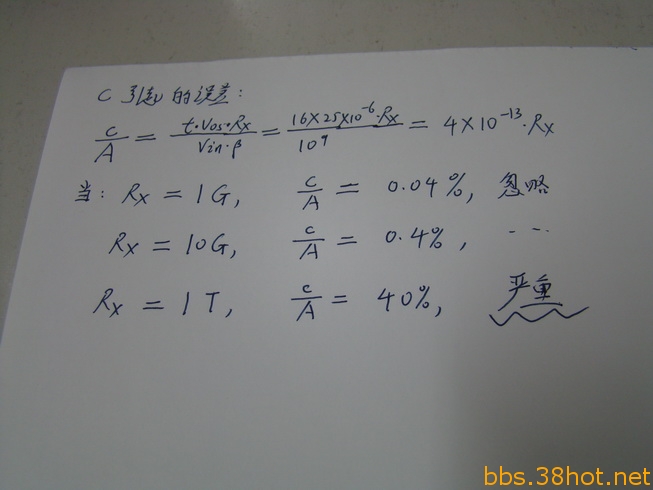 C 引起的误差:
C/A = t·Vos·Rx/Vin·β = 16×25×10⁻⁶·Rx/10⁹ = 4×10⁻¹³·Rx
当: Rx = 1G, C/A = 0.04%, 忽略
Rx = 10G, C/A = 0.4%, ...
Rx = 1T, C/A = 40%, 严重
bbs.38hot.net